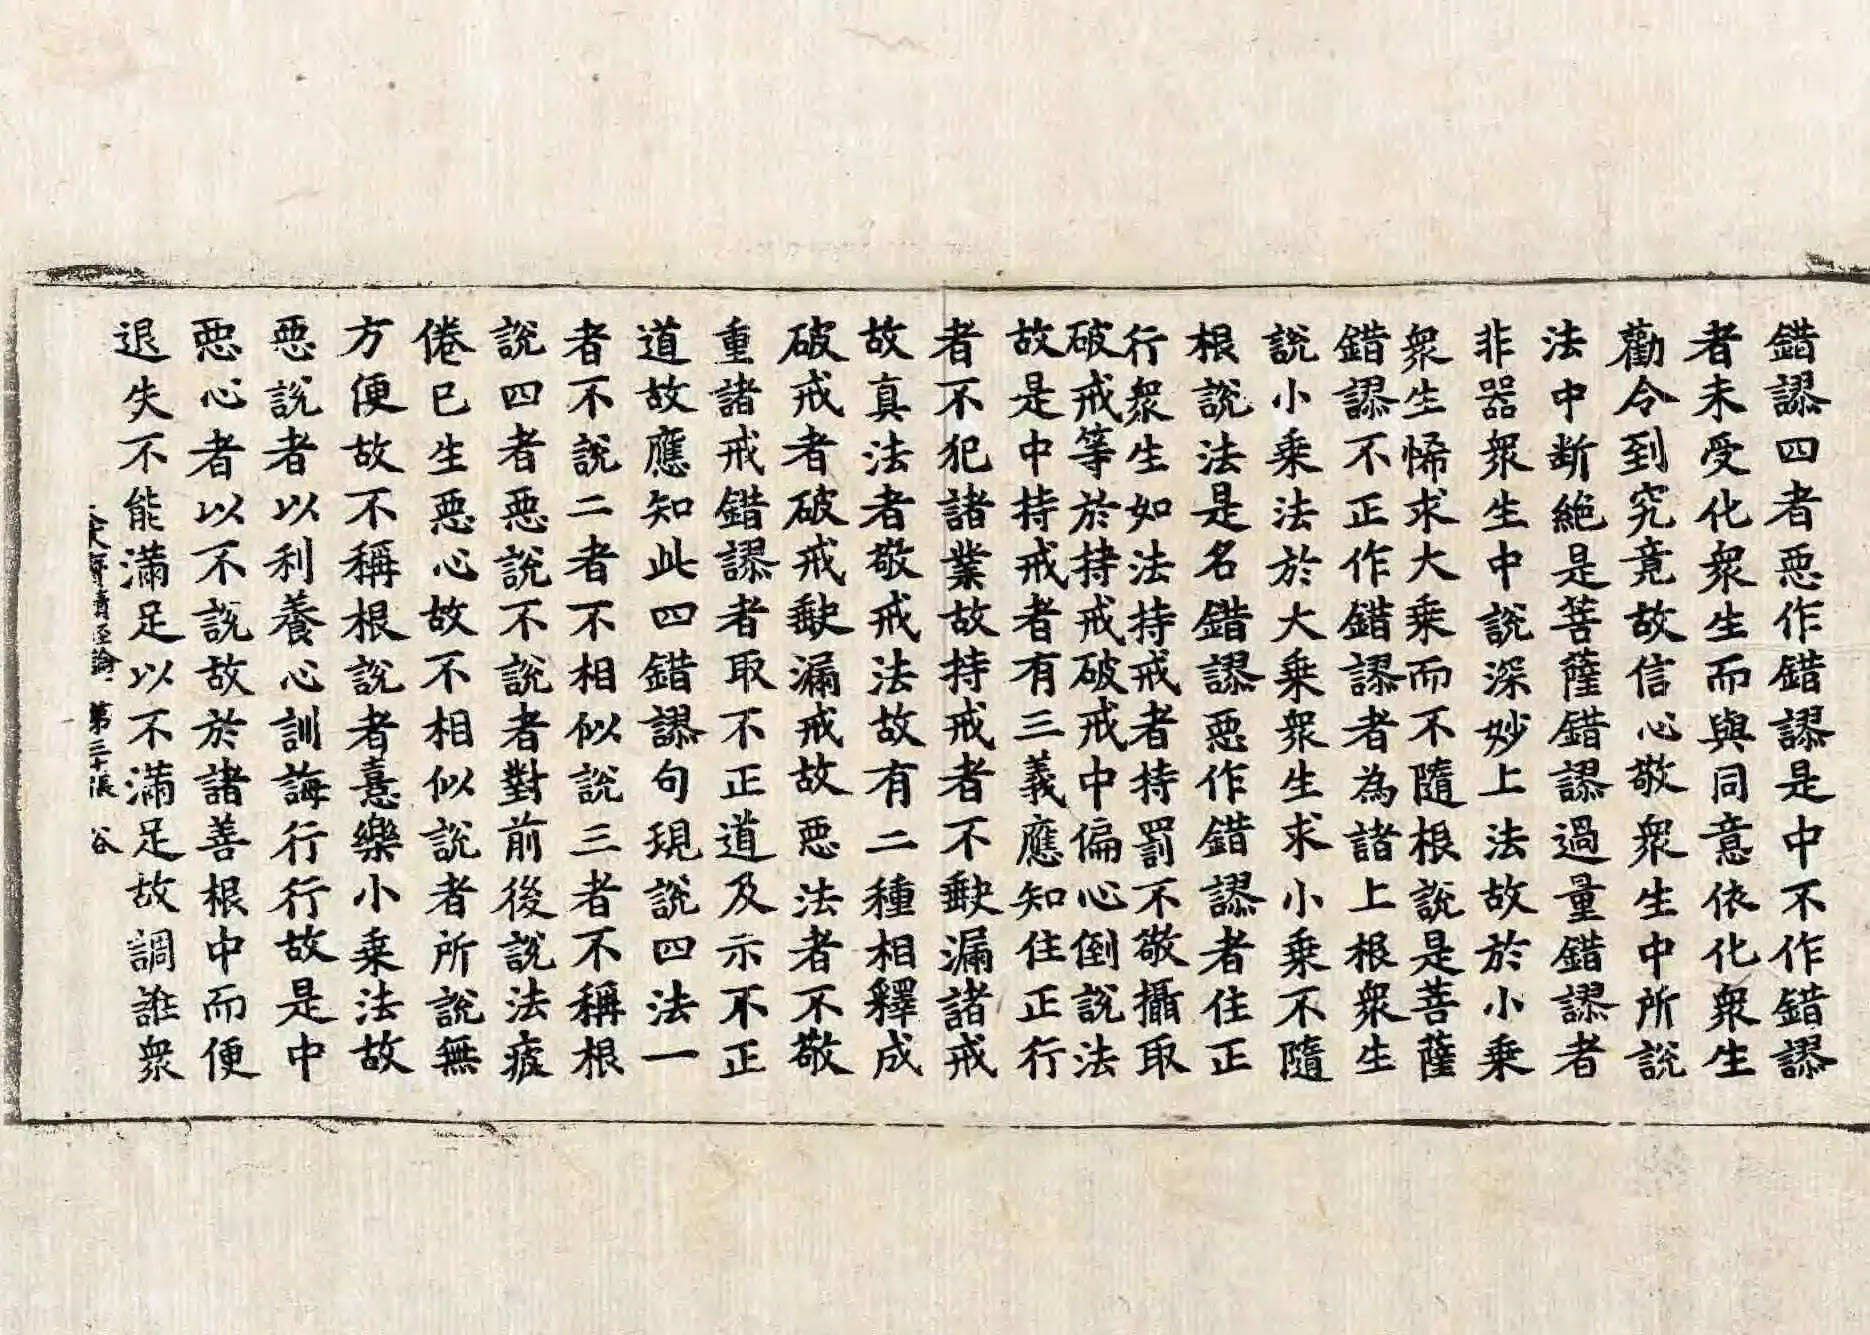 錯謬四者惡作錯謬是中不作錯謬
者未受化衆生而與同意依化衆生
勸令到究竟故信心敬衆生中所說
法中断絕是菩薩錯謬過量錯謬者
非器衆生中說深妙上法故於小乗
衆生悕求大乗而不隨根說是菩薩
錯謬不正作錯謬者為諸上根衆生
說小乗法於大乗衆生求小乗不隨
根說法是名錯謬惡作錯謬者住正
行衆生如法持戒者持罰不敬攝取
破戒等於持戒破戒中偏心倒說法
故是中持戒者有三義應知住正行
者不犯諸業故持戒者不缺漏諸戒
故真法者敬戒法故有二種相釋成
破戒者破戒缺漏戒故惡法者不敬
重諸戒錯謬者取不正道及示不正
道故應知此四錯謬句現說四法一
者不說二者不相似說三者不稱根
說四者惡說不說者對前後說法疲
倦已生惡心故不相似說者所說無
方便故不稱根說者憙樂小乗法故
惡說者以利養心訓誨行行故是中
惡心者以不說故於諸善根中而便
退失不能滿足以不滿足故調誰衆
第三十張 谷